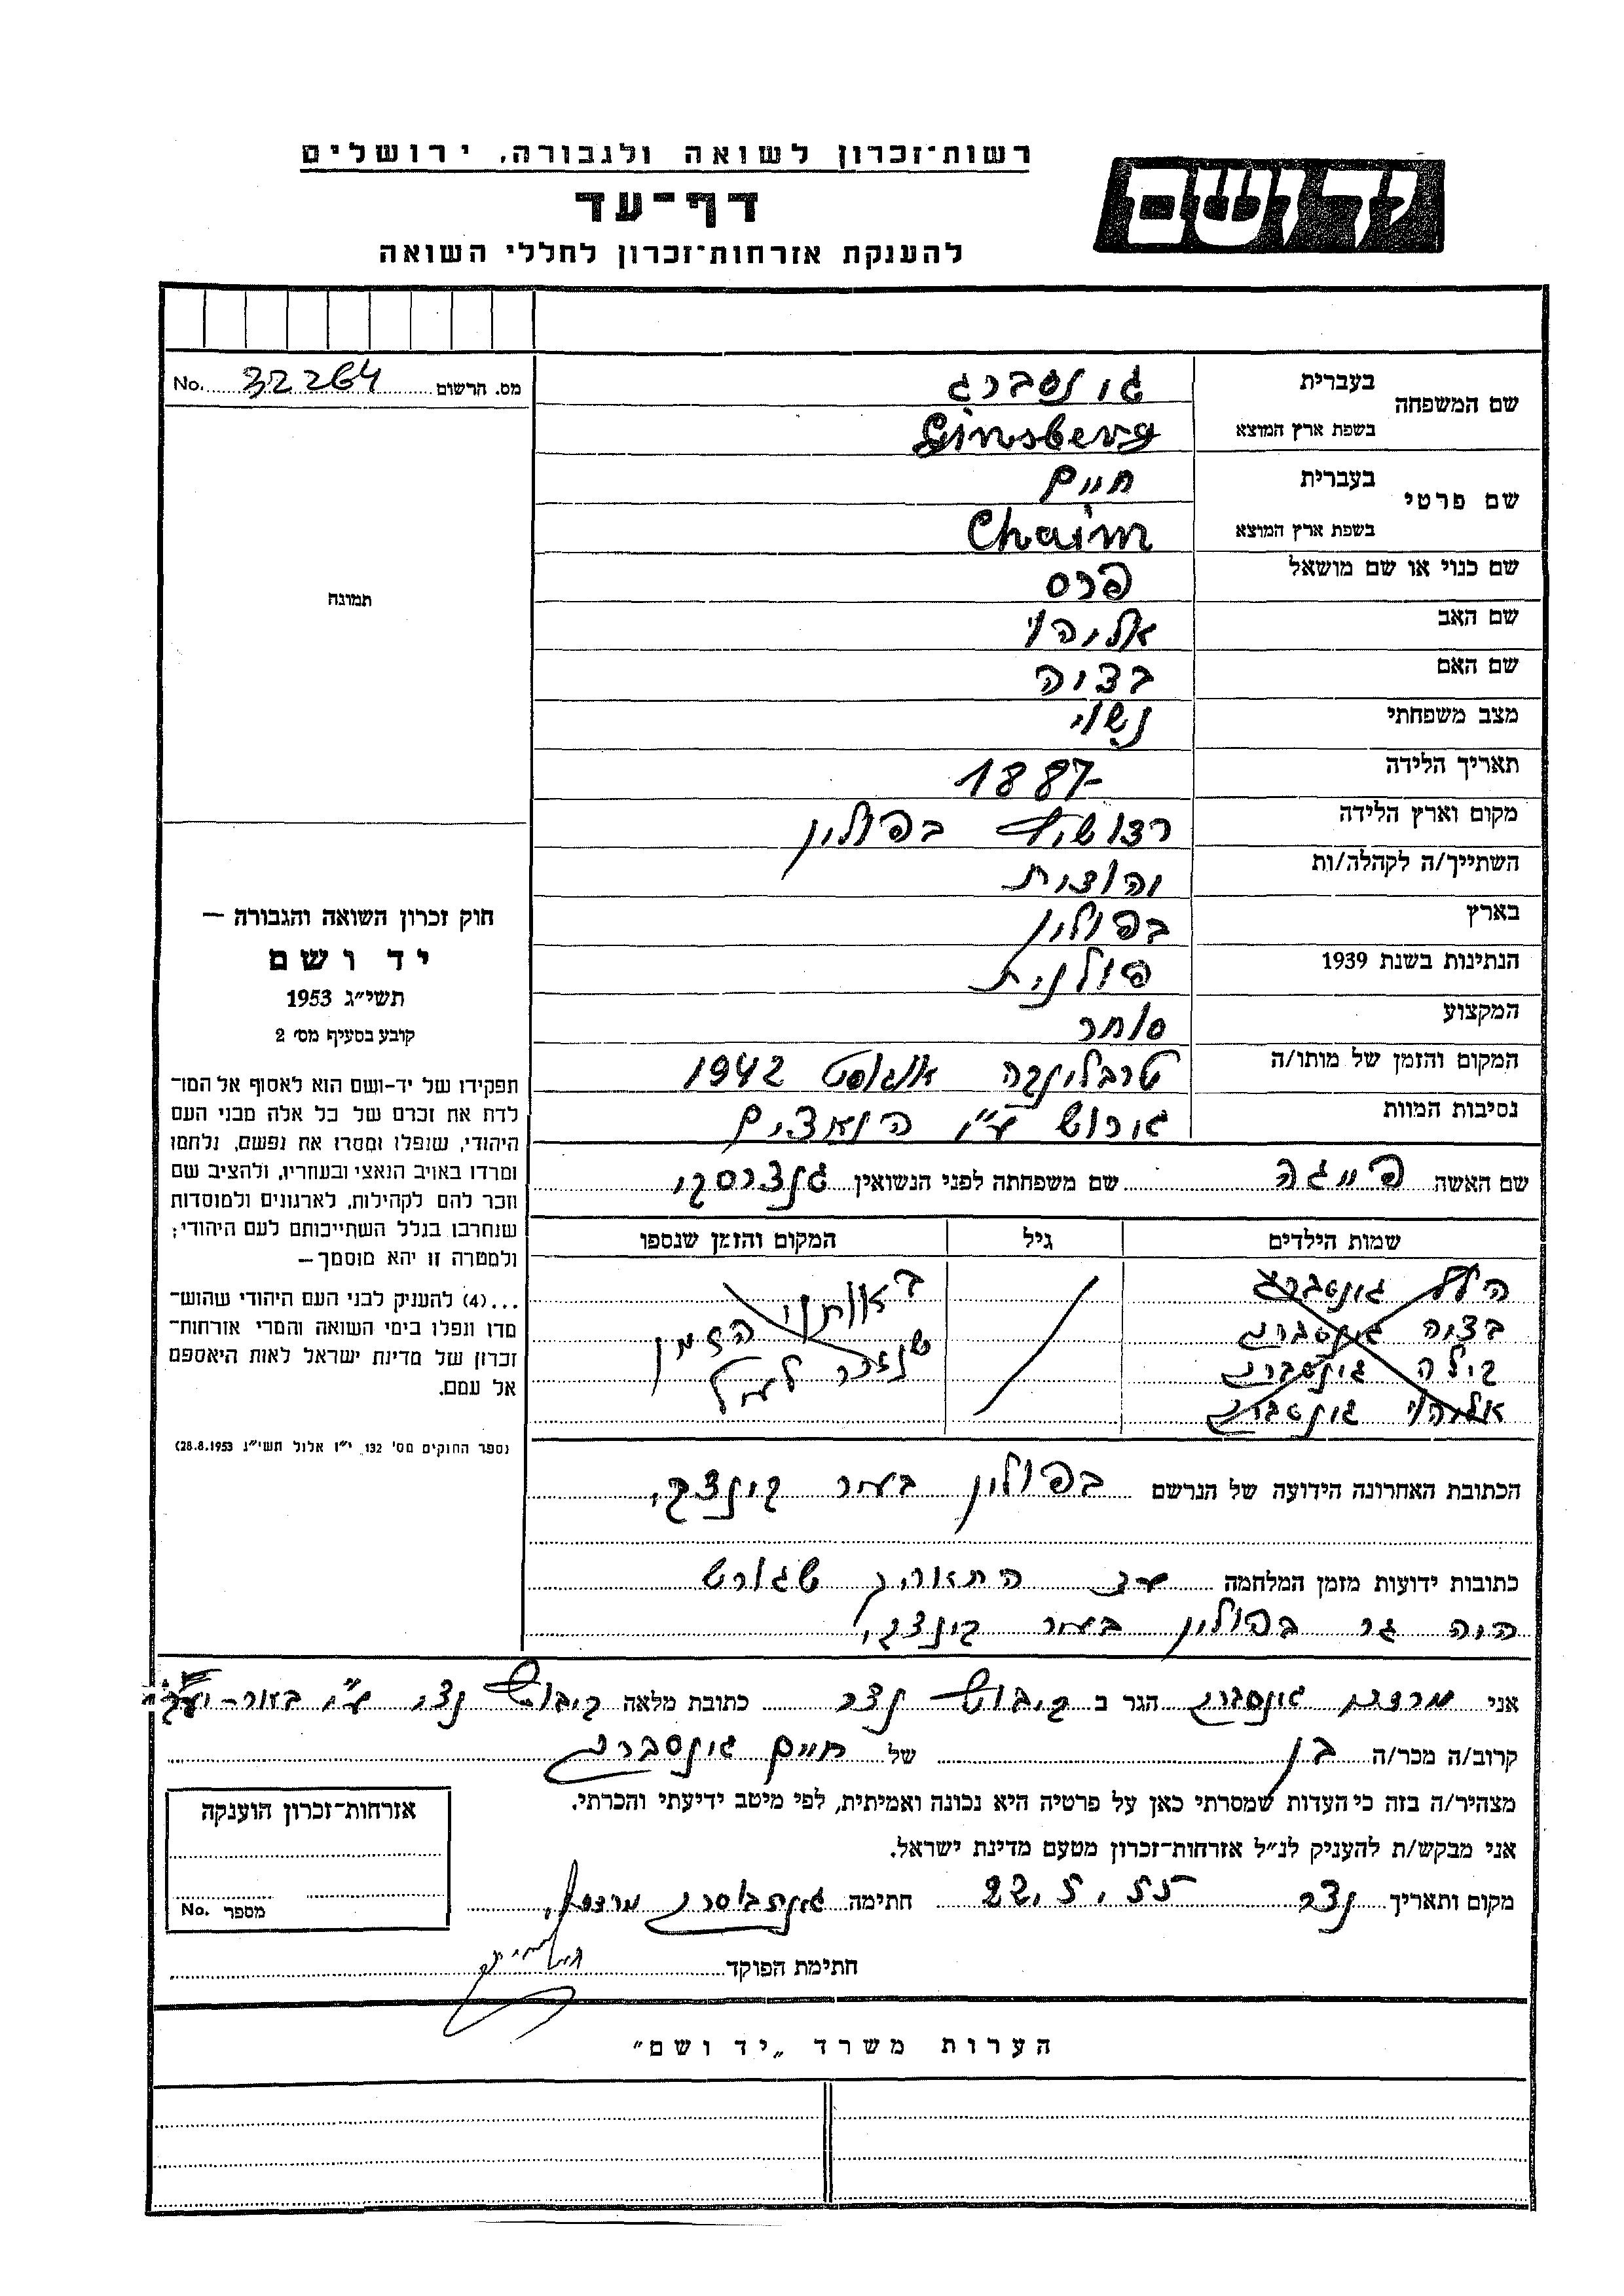 רשות־זכרון לשואה ולגבורה, ירושלים
יד ושם
דף־עד
להענקת אזרחות־זכרון לחללי השואה
מס. הרשום 32264 No.
שם המשפחה
בעברית גינסברג
בשפת ארץ המוצא Ginsberg
שם פרטי
בעברית חיים
בשפת ארץ המוצא Chaim
שם כנוי או שם מושאל פרס
שם האב אליהו
שם האם בציה
מצב משפחתי נשוי
תאריך הלידה 1887
מקום וארץ הלידה בפולין
השתייך/ה לקהלה/ות
בארץ בפולין
הנתינות בשנת 1939 פולנית
המקצוע סוחר
המקום והזמן של מותו/ה טרבלינקה אוגוסט 1942
נסיבות המוות גורוש ע"י הנאצים
תמונה
חוק זכרון השואה והגבורה —
יד ושם
תשי"ג 1953
קובע בסעיף מס׳ 2
תפקידו של יד-ושם הוא לאסוף אל המו־
לדת את זכרם של כל אלה מבני העם
היהודי, שנפלו ומסרו את נפשם, נלחמו
ומרדו באויב הנאצי ובעוזריו, ולהציב שם
וזכר להם לקהילות, לארגונים ולמוסדות
שנחרבו בגלל השתייכותם לעם היהודי;
ולמטרה זו יהא מוסמך—
...(4) להעניק לבני העם היהודי שהוש־
מדו ונפלו בימי השואה והמרי אזרחות־
זכרון של מדינת ישראל לאות היאספם
אל עמם.
(ספר החוקים מס׳ 132, י"ז אלול תשי"ג 28.8.1953)
שם האשה פייגה שם משפחתה לפני הנשואין
שמות הילדים גיל המקום והזמן שנספו
הלל גינסברג באותו
בציה גינסברג הזמן
בילה גינסברג שנזכר לעיל
אליהו גינסברג
הכתובת האחרונה הידועה של הנרשם בפולין בעיר
כתובות ידועות מזמן המלחמה עד התאריך שגורש
היה גר בפולין בעיר
אני מרדכי גינסברג הגר ב קיבוץ נצר כתובת מלאה קיבוץ נצר ע"י באר-יעקב
קרוב/ה מכר/ה בן של חיים גינסברג
מצהיר/ה בזה כי העדות שמסרתי כאן על פרטיה היא נכונה ואמיתית, לפי מיטב ידיעתי והכרתי.
אני מבקש/ת להעניק לנ"ל אזרחות־זכרון מטעם מדינת ישראל.
מקום ותאריך נצר 22.5.55 חתימה מרדכי
חתימת הפוקד
אזרחות־זכרון הוענקה
מספר No.
הערות משרד „יד ושם"